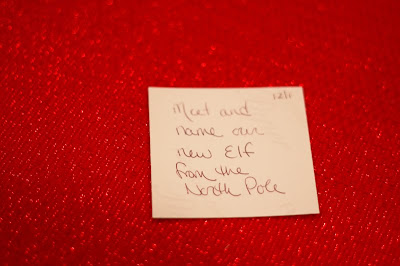 12/1
Meet and
name our
new Elf
from the
North Pole